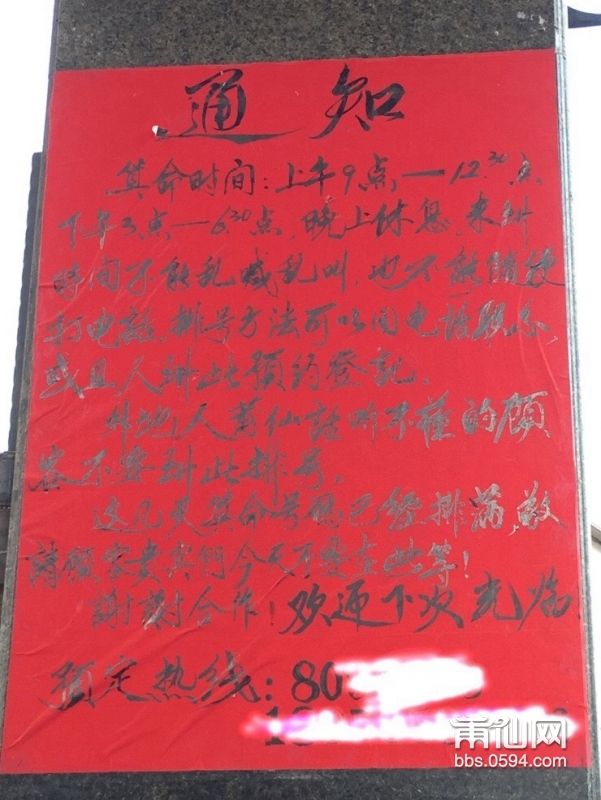 通知
算命时间：上午9点—12.30点
下午3点—6.30点，晚上休息，未到
时间不能乱喊乱叫，也不能随便
打电話，排号方法可以用电话联系，
或且人到此预约登記。
外地人莆仙話听不懂的顾
客不要到此排号。
这几天算命号码已经排满，敬
請顾客贵宾们今天不要在此等！
謝謝合作！欢迎下次光临
预定热线：80
莆仙网
bbs.0594.com